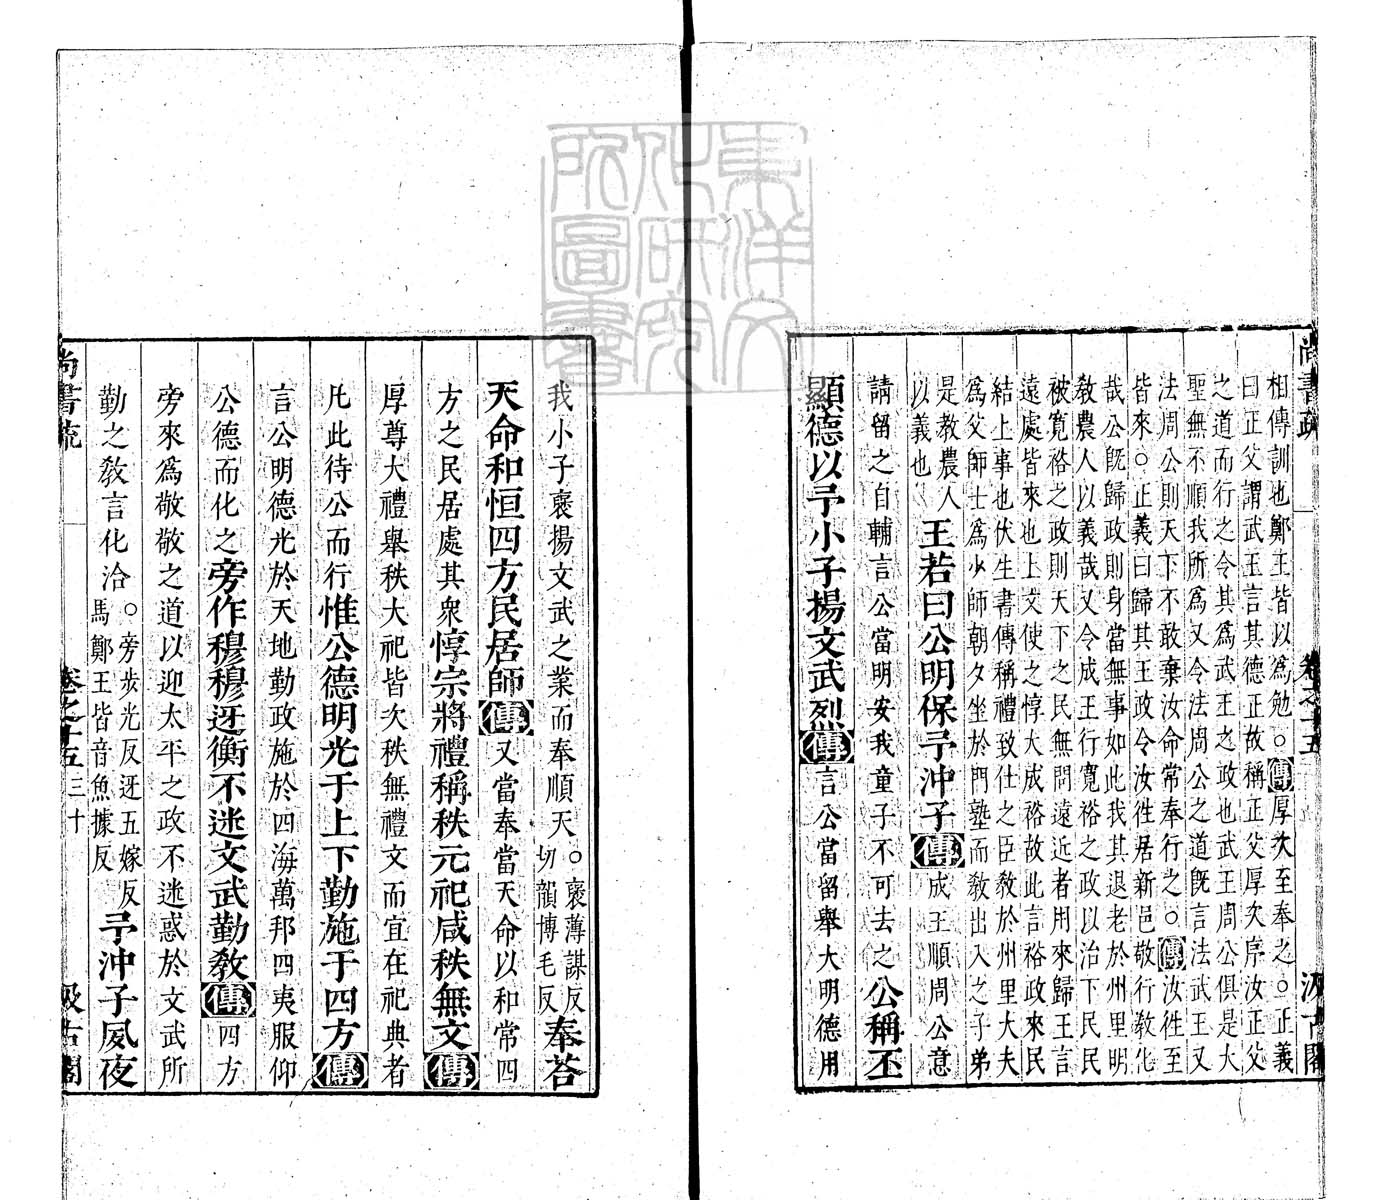 相傳訓也鄭王皆以爲勉○傳厚次至奉之○正義
曰正父謂武王言其德正故稱正父厚次序汝正父
之道而行之令其爲武王之政也武王周公俱是大
聖無不順我所爲又令法周公之道旣言法武王又
法周公則天下不敢棄汝命常奉行之○傳汝徃至
皆來○正義曰歸其王政令汝徃居新邑敬行敎化
哉公旣歸政則身當無事如此我其退老於州里明
敎農人以義哉又令成王行寬裕之政以治下民民
被寛裕之政則天下之民無問遠近者用來歸王言
遠處皆來也上文使之惇大成裕故此言裕政來民
結上事也伏生書傳稱禮致仕之臣敎於州里大夫
爲父師士爲少師朝夕坐於門塾而敎出入之子弟
是教農人
以義也
王若曰公明保予沖子傳成王順周公意
請留之自輔言公當明安我童子不可去之公稱丕
顯德以予小子揚文武烈傳言公當留舉大明德用
尚書疏
卷之十五
汲古閣
我小子襃揚文武之業而奉順天○襃薄謀反
切韻博毛反
奉荅
天命和恒四方民居師傳又當奉當天命以和常四
方之民居處其衆惇宗將禮稱秩元祀咸秩無文傳
厚尊大禮舉秩大祀皆次秩無禮文而宜在祀典者
凢此待公而行惟公德明光于上下勤施于四方傳
言公明德光於天地勤政施於四海萬邦四夷服仰
公德而化之旁作穆穆迓衡不迷文武勤敎傳四方
旁來爲敬敬之道以迎太平之政不迷惑於文武所
勤之敎言化洽○旁步光反迓五嫁反
馬鄭王皆音魚據反
予沖子夙夜
尚書疏
卷之十五
三十
汲古閣
東洋文
化研究
所圖書